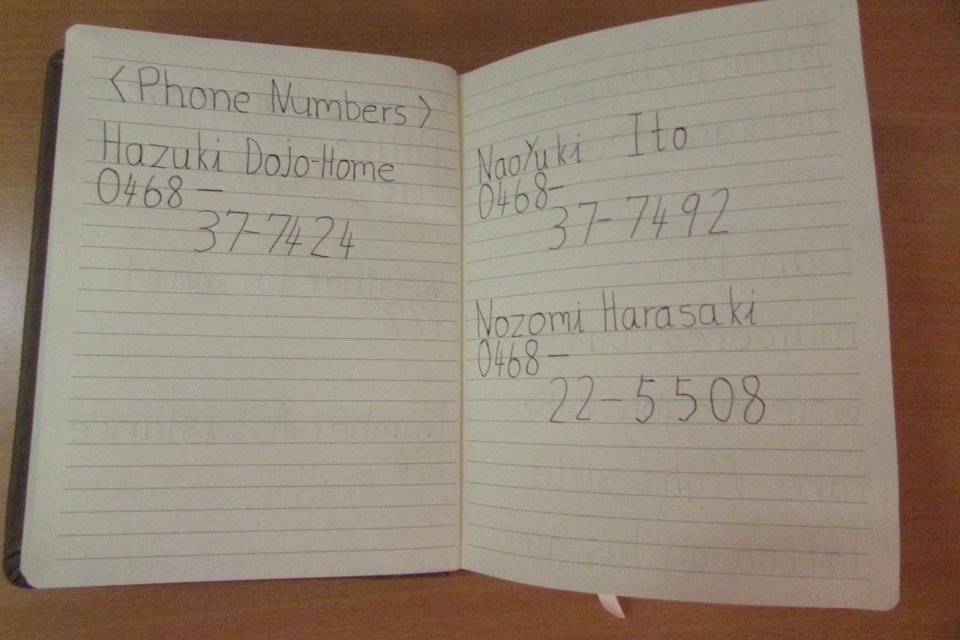 <Phone Numbers>
Hazuki Dojo-Home
0468—
37-7424
NaoYuki Ito
0468-
37-7492
Nozomi Harasaki
0468—
22-5508